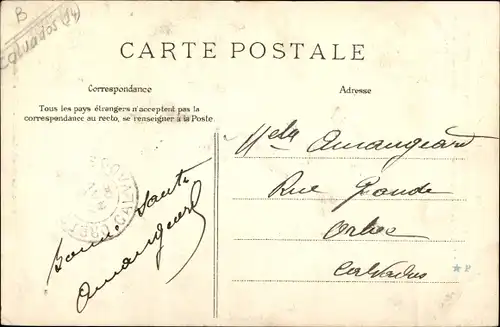 B
Calvados (14)
CARTE POSTALE
Correspondance
Adresse
Tous les pays étrangers n'acceptent pas la
correspondance au recto, se renseigner à la Poste
Amangeard
Rue Grande
Orbec
Calvados
Bonne Santé
Amangeard
CALVADOS